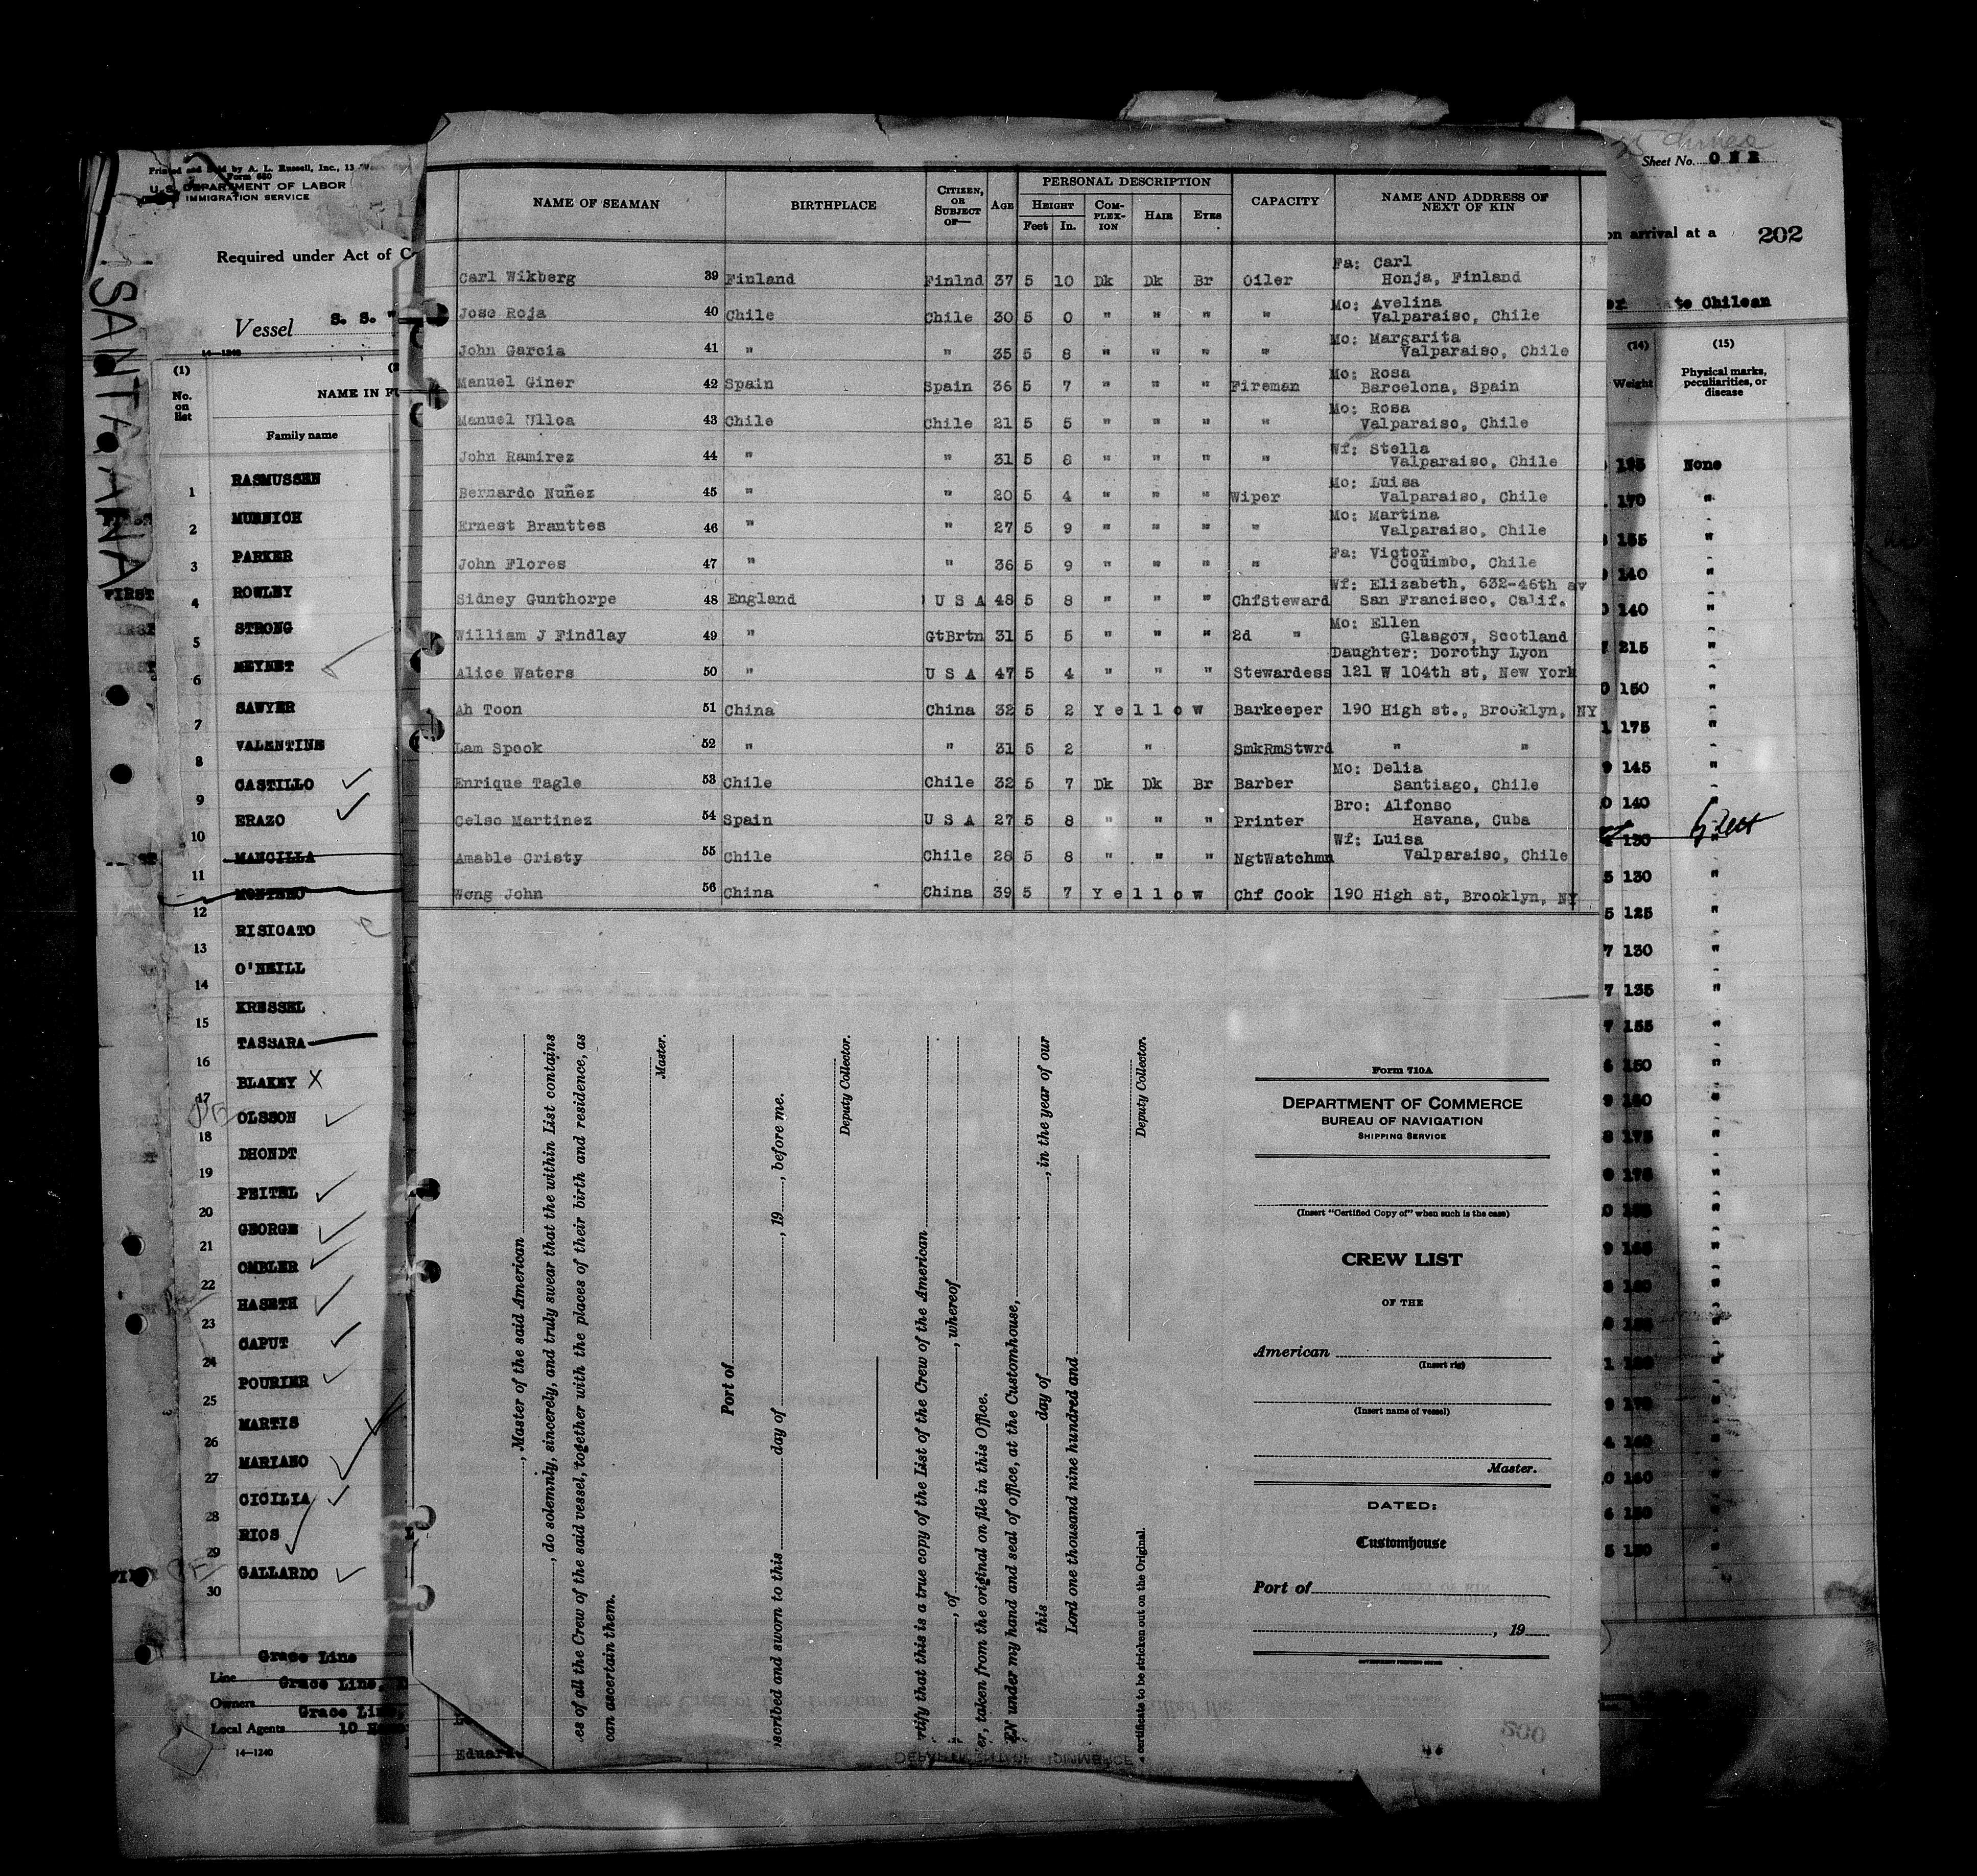 Printed and Sold by A. L. Russell, Inc., 13
Form 680
U. S. DEPARTMENT OF LABOR
IMMIGRATION SERVICE
Required under Act of C
Vessel S. S. "
SANTA ANA
14—1240
(1)
No. on list
NAME IN FU
Family name
1 RASMUSSEN
2 MUNNICH
3 PARKER
4 ROWLEY
5 STRONG
6 MEYNET
7 SAWYER
8 VALENTINE
9 CASTILLO
10 ERAZO
11 MANCILLA
12 MONTERO
13 RISICATO
14 O'NEILL
15 KRESSEL
16 TASSARA
17 BLAKEY X
18 OLSSON
19 DHONDT
20 PEITEL
21 GEORGE
22 OMBLER
23 HASETH
24 CAPUT
25 POURIER
26 MARTIS
27 MARIANO
28 CICILIA
29 RIOS
30 GALLARDO
Line Grace Line
Owners Grace Line,
Local Agents Grace Line,
10
14—1240
NAME OF SEAMAN
BIRTHPLACE
CITIZEN, OR SUBJECT OF—
AGE
PERSONAL DESCRIPTION
HEIGHT
Feet In.
COMPLEXION
HAIR
EYES
CAPACITY
NAME AND ADDRESS OF NEXT OF KIN
Fa: Carl
Carl Wikberg 39 Finland Finlnd 37 5 10 Dk Dk Br Oiler Honja, Finland
Mo: Avelina
Jose Roja 40 Chile Chile 30 5 0 " " " " Valparaiso, Chile
Mo: Margarita
John Garcia 41 " " 35 5 8 " " " " Valparaiso, Chile
Mo: Rosa
Manuel Giner 42 Spain Spain 36 5 7 " " " Fireman Barcelona, Spain
Mo: Rosa
Manuel Ulloa 43 Chile Chile 21 5 5 " " " " Valparaiso, Chile
Wf: Stella
John Ramirez 44 " " 31 5 8 " " " " Valparaiso, Chile
Mo: Luisa
Bernardo Nuñez 45 " " 20 5 4 " " " Wiper Valparaiso, Chile
Mo: Martina
Ernest Branttes 46 " " 27 5 9 " " " " Valparaiso, Chile
Fa: Victor
John Flores 47 " " 36 5 9 " " " " Coquimbo, Chile
Wf: Elizabeth, 632-46th av
Sidney Gunthorpe 48 England U S A 48 5 8 " " " ChfSteward San Francisco, Calif.
Mo: Ellen
William J Findlay 49 " GtBrtn 31 5 5 " " " 2d " Glasgow, Scotland
Daughter: Dorothy Lyon
Alice Waters 50 " U S A 47 5 4 " " " Stewardess 121 W 104th st, New York
Ah Toon 51 China China 32 5 2 Yellow Barkeeper 190 High st., Brooklyn, NY
Lam Spook 52 " " 31 5 2 " SmkRmStwrd " "
Mo: Delia
Enrique Tagle 53 Chile Chile 32 5 7 Dk Dk Br Barber Santiago, Chile
Bro: Alfonso
Celso Martinez 54 Spain U S A 27 5 8 " " " Printer Havana, Cuba
Wf: Luisa
Amable Cristy 55 Chile Chile 28 5 8 " " " NgtWatchmn Valparaiso, Chile
Wong John 56 China China 39 5 7 Yellow Chf Cook 190 High st, Brooklyn, NY
, Master of the said American
, do solemnly, sincerely, and truly swear that the within List contains
es of all the Crew of the said vessel, together with the places of their birth and residence, as
can ascertain them.
Master.
Port of
scribed and sworn to this day of , 19 , before me.
Deputy Collector.
rtify that this is a true copy of the List of the Crew of the American
, of , whereof
er, taken from the original on file in this Office.
EN under my hand and seal of office, at the Customhouse,
this day of , in the year of our
Lord one thousand nine hundred and
Deputy Collector.
certificate to be stricken out on the Original.
Form 710A
DEPARTMENT OF COMMERCE
BUREAU OF NAVIGATION
SHIPPING SERVICE
(Insert "Certified Copy of" when such is the case)
CREW LIST
OF THE
American
(Insert rig)
(Insert name of vessel)
Master.
DATED:
Customhouse
Port of
, 19
GOVERNMENT PRINTING OFFICE
Eduard
500
Sheet No. ONE
on arrival at a 202
te Chilean
(14)
Weight
(15)
Physical marks, peculiarities, or disease
195 None
170 "
155 "
140 "
140 "
215 "
150 "
175 "
145 "
140 "
130
130 "
125 "
130 "
135 "
155 "
150 "
160 "
175 "
175 "